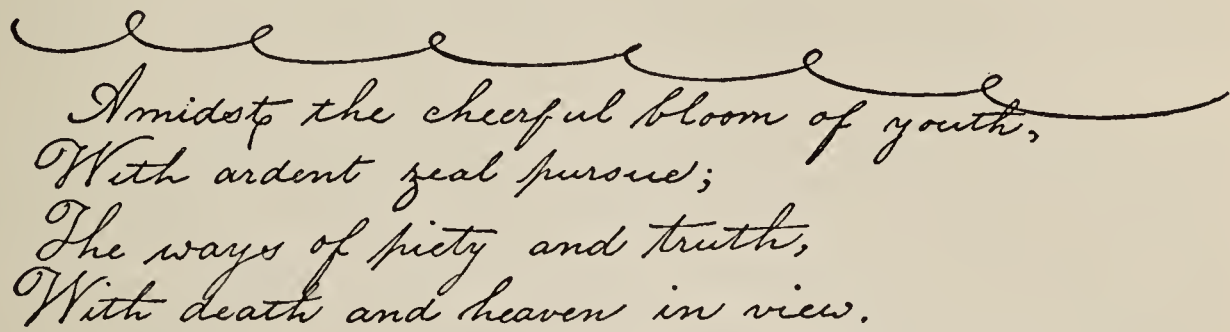 Amidst the cheerful bloom of youth,
With ardent zeal pursue;
The ways of piety and truth,
With death and heaven in view.